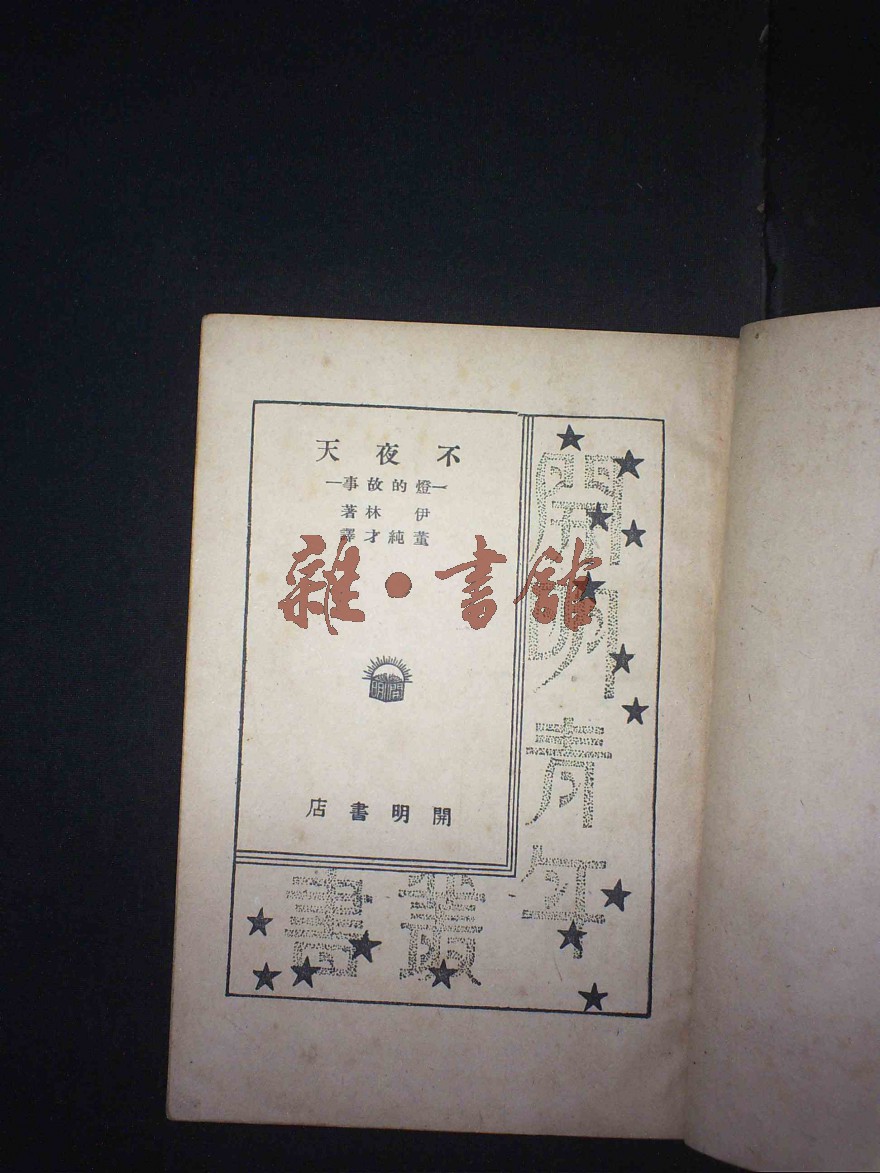 不夜天
—燈的故事—
伊林著
董純才譯
雜·書館
開明
開明書店
開明青年
叢書